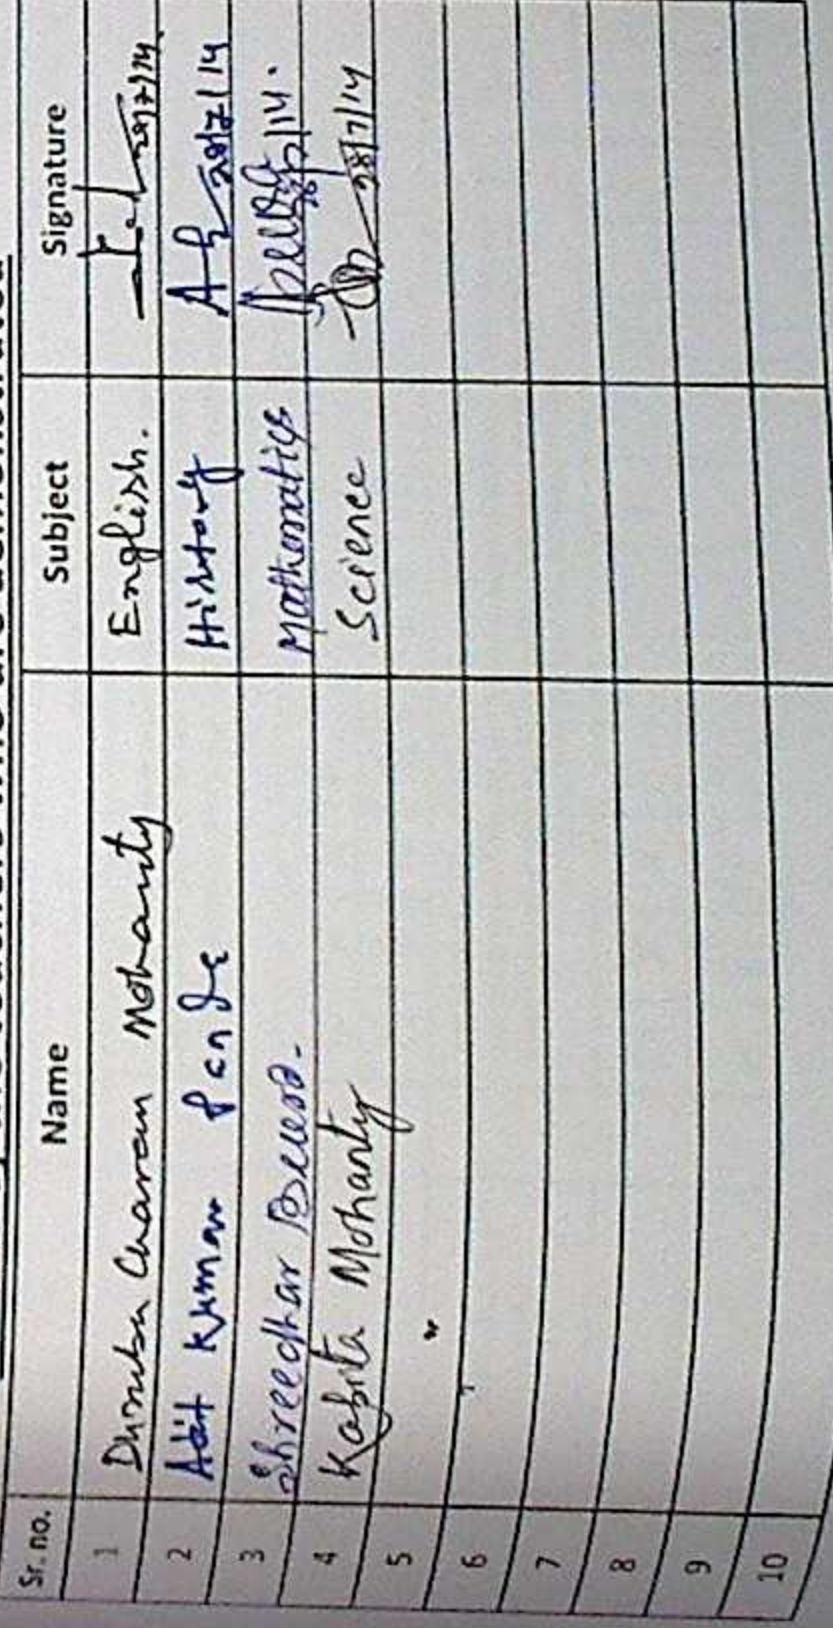 Sr. no. Name Subject Signature
1 Dhruba Charan Mohanty English.
2 Kumar Panda History 28/7/14
3 Shreedhar Mathematics
4 Kabita Mohanty Science 28/7/14
5
6
7
8
9
10